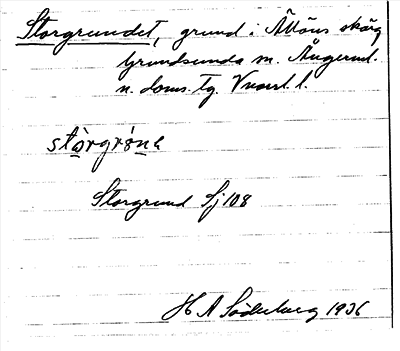 Storgrundet, grund i Ällöns skärg
Grundsunda sn. Ångerml.
n. doms. tg. Vnorrl. l.
stòrgrʹɵnə
Storgrund Sj 108
H A Söderberg 1936